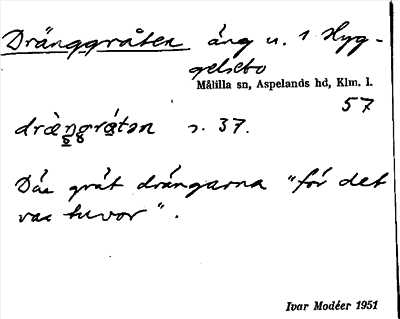 Dränggråten äng u. 1 Hyg-
gelsebo
Målilla sn, Aspelands hd, Klm. l.
57
dräŋgrátən s. 37.
Där grät drängarna "för det
var tuvor".
Ivar Modéer 1951